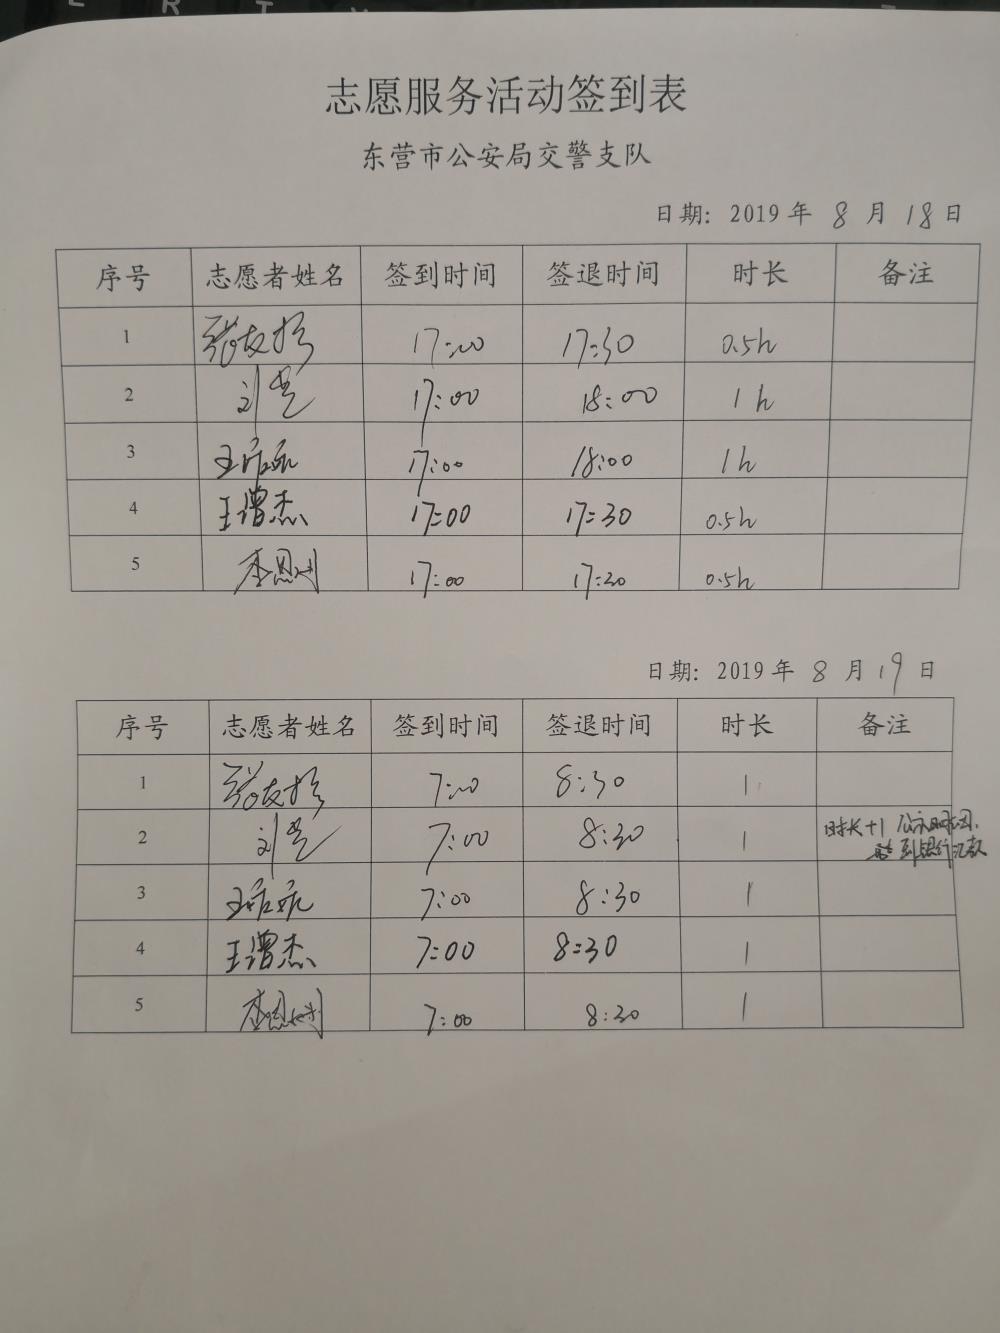 志愿服务活动签到表
东营市公安局交警支队
日期: 2019 年 8 月 18 日
序号 志愿者姓名 签到时间 签退时间 时长 备注
1 张友 17:00 17:30 0.5h
2 刘 17:00 18:00 1h
3 王 17:00 18:00 1h
4 王增杰 17:00 17:30 0.5h
5 李恩 17:00 17:30 0.5h
日期: 2019 年 8 月 19 日
序号 志愿者姓名 签到时间 签退时间 时长 备注
1 张友 7:00 8:30 1
2 刘 7:00 8:30 1 时长+1
到银行汇款
3 王 7:00 8:30 1
4 王增杰 7:00 8:30 1
5 李恩 7:00 8:30 1